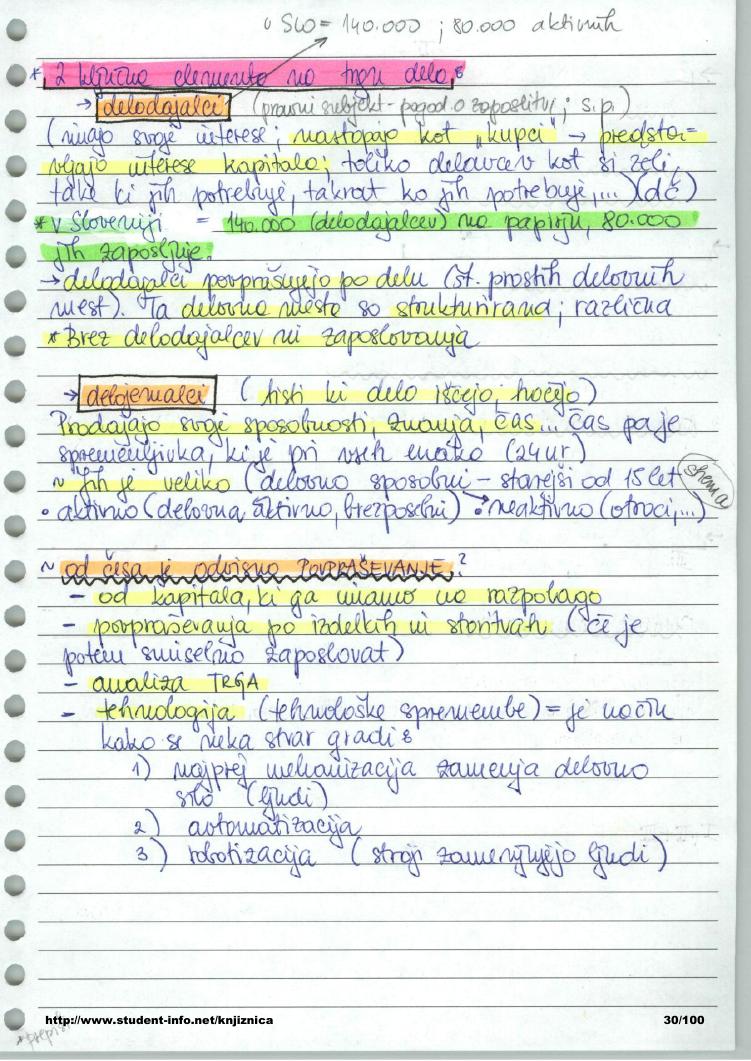 v SLO = 140.000 ; 80.000 aktivnih
* 2 ključna elementa na trgu dela:
→ delodajalci (pravni subjekt - pogod. o zaposlitvi; s.p.)
(imajo svoje interese; nastopajo kot „kupci“ → predsta-
vljajo interese kapitala; toliko delavcev kot si želi,
take ki jih potrebuje, takrat ko jih potrebuje,...) (dč)
* v Sloveniji = 140.000 (delodajalcev) na papirju, 80.000
jih zaposljuje.
→ delodajalci povprašujejo po delu (št. prostih delovnih
mest). Ta delovna mesta so strukturirana; različna
* Brez delodajalcev ni zaposlovanja
→ delojemalci (tisti ki delo iščejo, hočejo)
Prodajajo svoje sposobnosti, znanja, čas... čas pa je
spremenljivka, ki je pri vseh enako (24 ur)
~ Jih je veliko (delovno sposobni - starejši od 15 let
shema
• aktivno (delovna aktivno, brezposelni) • neaktivno (otroci,...)
~ od česa je odvisno POVPRAŠEVANJE?
- od kapitala, ki ga imamo na razpolago
- povpraševanja po izdelkih in storitvah (če je
potem smiselno zaposlovat)
- analiza TRGA
- tehnologija (tehnološke spremembe) = je način
kako se neka stvar gradi:
1) najprej mehanizacija zamenja delovno
silo (ljudi)
2) avtomatizacija
3) robotizacija (stroji zamenjujejo ljudi)
http://www.student-info.net/knjiznica 30/100